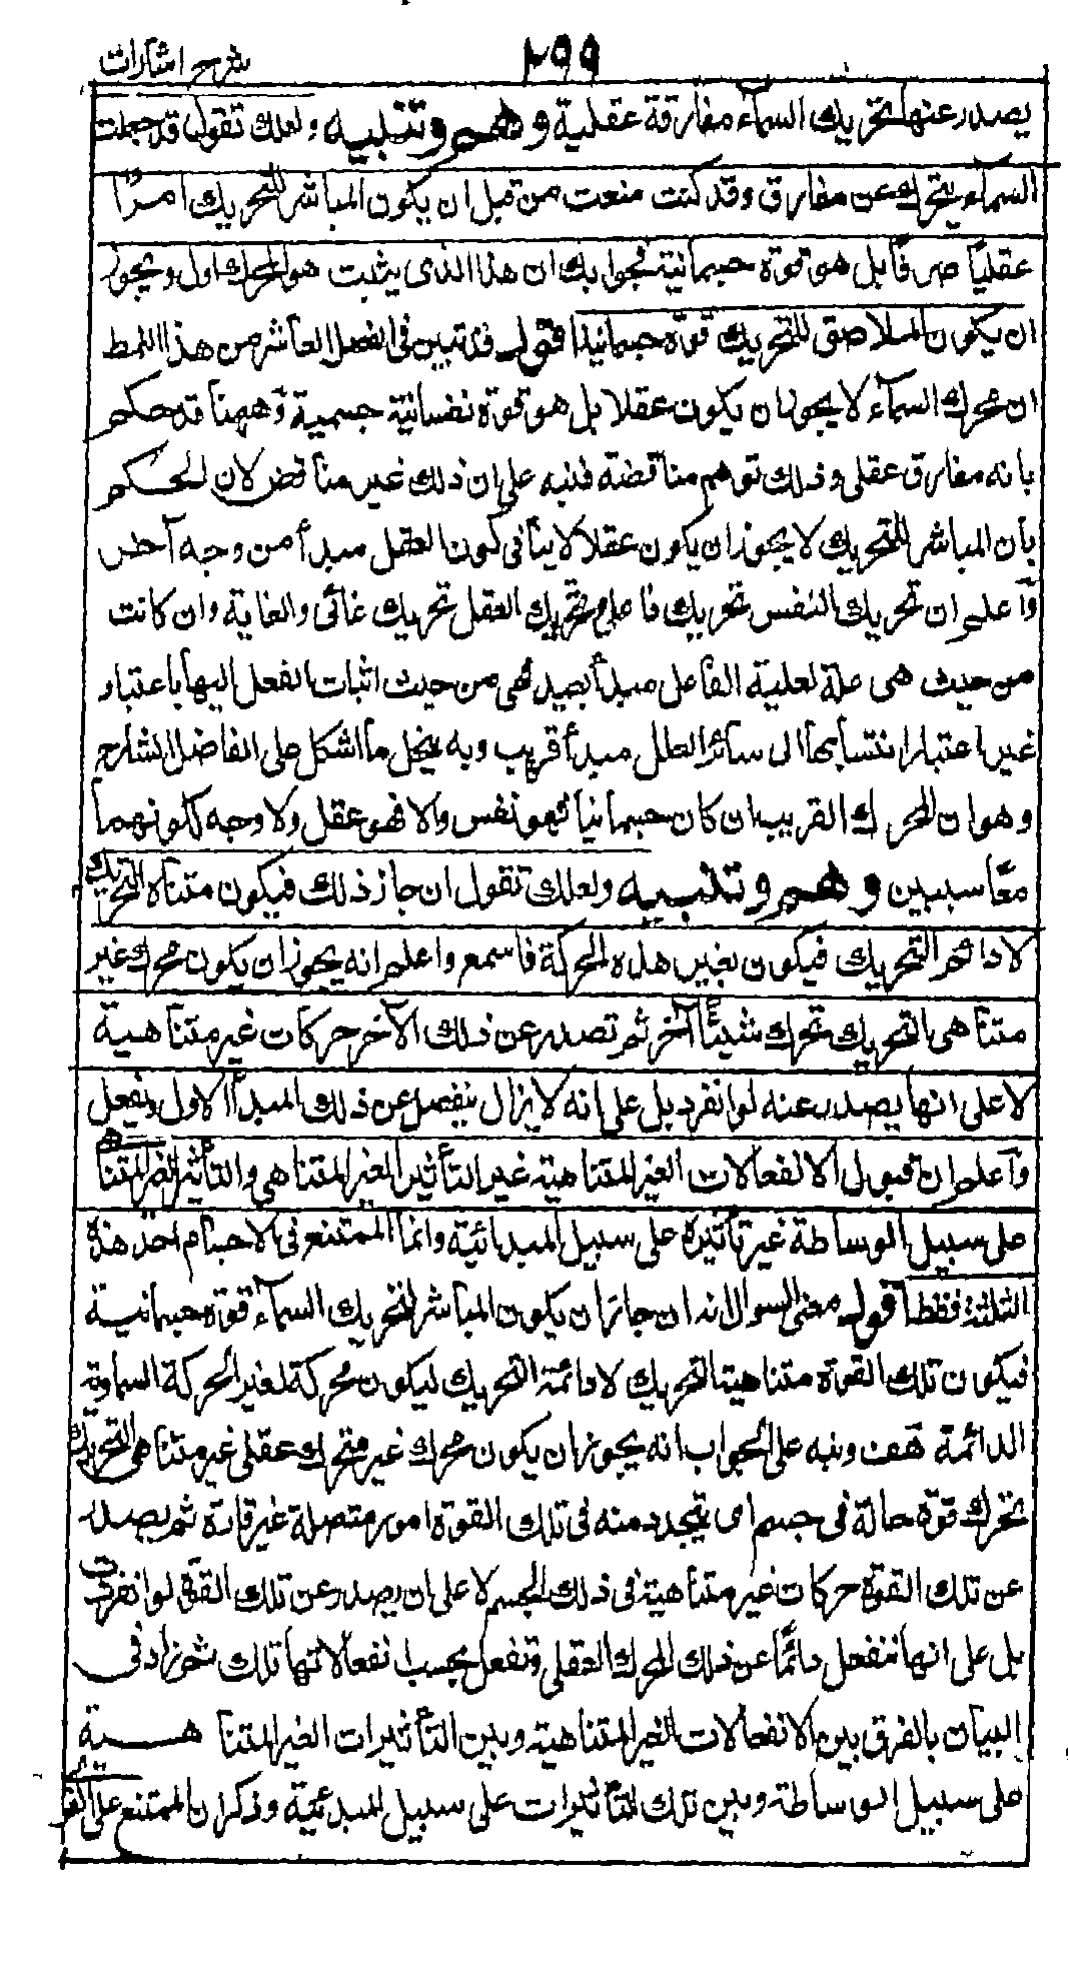 شرح اشارات
٢٩٩
يصدر عنها تحريك السماء مفارقة عقلية وهم وتنبيه ولعلك تقول قد جعلت
السماء يتحرك عن مفارق وقد كنت منعت من قبل ان يكون المباشر للتحريك امرًا
عقليًا صرفًا بل هو قوة جسمانية فجوابك ان هذا الذى يثبت هو المحرك اول ويجوز
ان يكون الملاصق للتحريك قوة جسمانية اقول قد تبين فى الفصل العاشر من هذا النمط
ان محرك السماء لا يجوز ان يكون عقلا بل هو قوة نفسانية جسمية وههنا قد حكم
بانه مفارق عقلى وذلك توهم مناقضة فنبه على ان ذلك غير مناقض لان الحكم
بأن المباشر للتحريك لا يجوز ان يكون عقلا لا ينافى كون العقل مبدأ من وجه آخر
وآعلم ان تحريك النفس تحريك فاعلى وتحريك العقل تحريك غائى والغاية وان كانت
من حيث هى علة لعلية الفاعل مبدأ بعيد فهى من حيث اثبات الفعل اليها باعتبار
غير اعتبار انتسابها الى سائر العلل مبدأ قريب وبه ينحل ما اشكل على الفاضل الشارح
وهو ان المحرك القريب ان كان جسمانيا فهو نفس والا فهو عقل ولا وجه لكونهما
معًا سببين وهم وتنبيه ولعلك تقول ان جاز ذلك فيكون متناه التحريك
لا دائم التحريك فيكون بغير هذه الحركة فاسمع واعلم انه يجوز ان يكون محرك غير
متناهى التحريك تحرك شيئًا آخر ثم تصدر عن ذلك الآخر حركات غير متناهية
لا على انها يصدر عنه لو انفرد بل على انه لا يزال ينفعل عن ذلك المبدأ الاول ويفعل
وآعلم ان قبول الانفعالات الغير المتناهية غير التأثير الغير المتناهى والتأثير الغير المتناهى
على سبيل الوساطة غير تأثيره على سبيل المبدائية وانما الممتنع فى الاجسام احد هذه
الثلثة فقط آقول معنى السوال انه ان جاز ان يكون المباشر لتحريك السماء قوة جسمانية
فيكون تلك القوة متناهية التحريك لا دائمة التحريك ليكون محركة لغير الحركة السماوية
الدائمة هف ونبه على الجواب انه يجوز ان يكون محرك غير متحرك عقلى غير متناهى التحريك
تحرك قوة حالة فى جسم اى يتجدد منه فى تلك القوة امور متصلة غير قارة ثم يصدر
عن تلك القوة حركات غير متناهية فى ذلك الجسم لا على ان يصدر عن تلك القوة لو انفردت
بل على انها تنفعل دائمًا عن ذلك المحرك العقلى وتفعل بحسب انفعالاتها تلك ثم زاد فى
البيان بالفرق بين الانفعالات الغير المتناهية وبين التأثيرات الغير المتناهية
على سبيل الوساطة وبين تلك التأثيرات على سبيل المبدئية وذكر ان الممتنع على